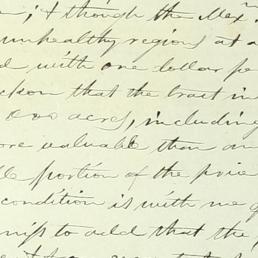 ; & though the Mex
unhealthy regions at a
with one dollar pe
that the tract in
000 acres, including
valuable than an
portion of the price
condition is with me
to add that the